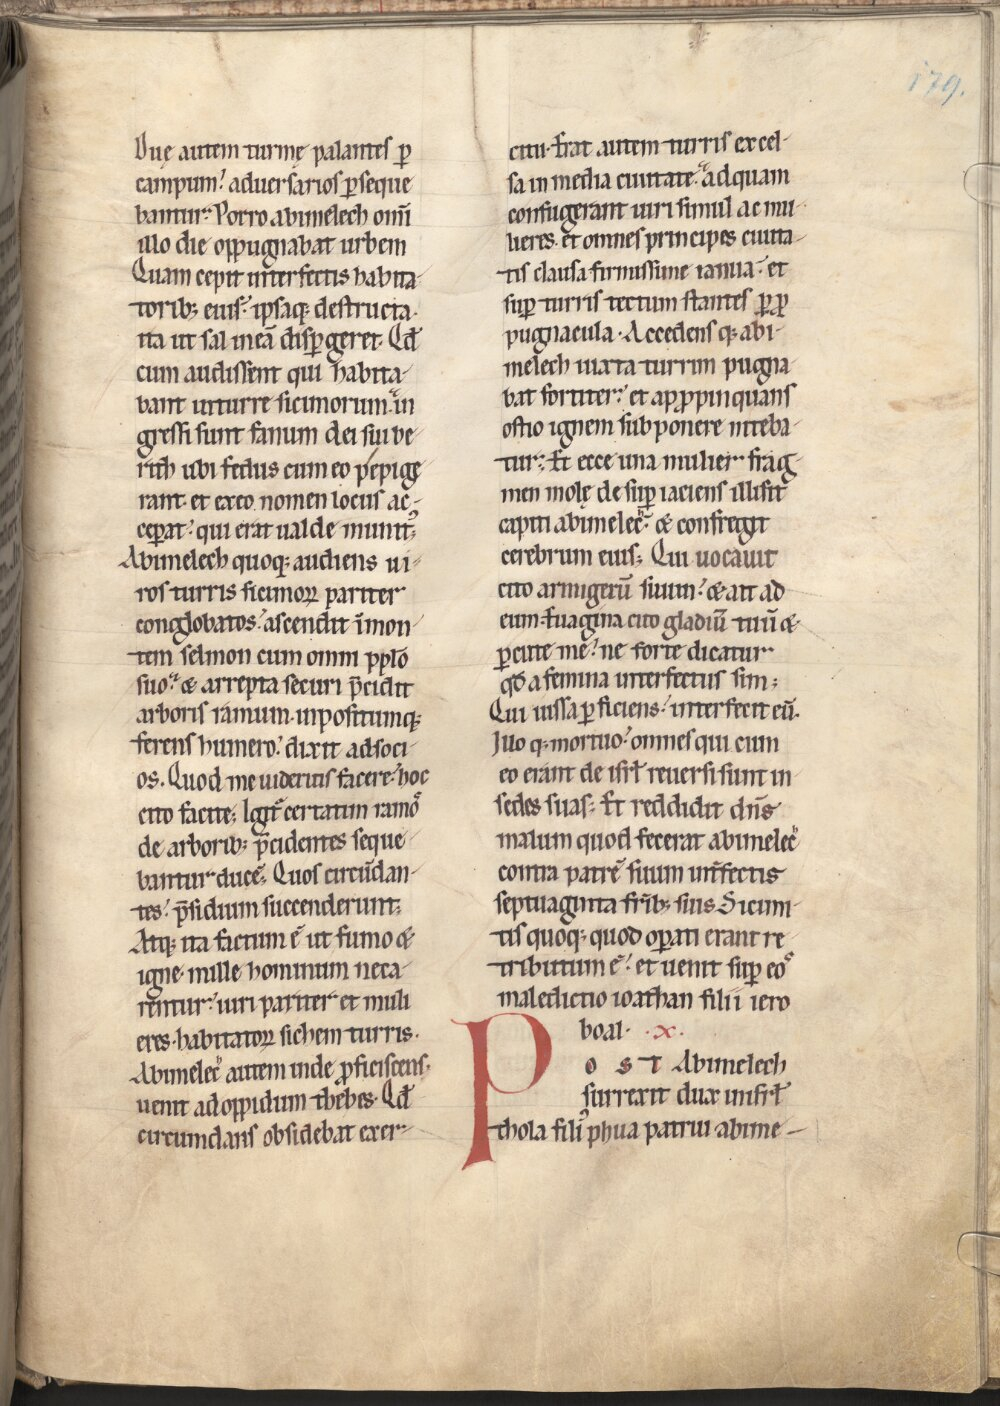 179.
Duę autem turmę palantes ꝑ
campum? aduersarios ꝑseque
bantur. Porro abimelech om̅i
illo die oppugnabat urbem
Quam cepit interfectis habita
torib; eius. ipsaq; destructa.
ita ut sal in ea̅ disꝑgeret. Qd̅
cum audissent qui habita
bant in turre sicimorum. in
gressi sunt fanum dei sui be
rith ubi fedus cum eo pepige
rant. et ex eo nomen locus ac
ceꝑat. qui erat ualde munitꝰ
Abimelech quoq; audiens ui
ros turris sicimoꝝ pariter
conglobatos. ascendit i̅ mon
tem selmon cum omni ppło
suo. & arrepta securi p̅cidit
arboris ramum. inpositumq;
ferens humero. dixit ad soci
os. Quod me uideritis facere. hoc
cito facite; Igit̅ certatim ramoˢ
de arborib; p̅cidentes seque
bantur duce̅; Quos circu̅dan
tes. p̅sidium succenderunt;
Atq; ita factum e̅ ut fumo &
igne mille hominum neca
rentur. uiri pariter et muli
eres. habitatoꝝ sichem turris.
Abimelec̅ autem inde ꝓficiscens.
uenit ad oppidum thebes. Qd̅
circumdans obsidebat exer
citu. Erat autem turris excel
sa in media ciuitate. ad quam
confugerant uiri simul ac mu
lieres. et omnes principes ciuita
tis clausa firmissime ianua. et
suꝑ turris tectum stantes ꝑ ꝓ
pugnacula. Accedens q; abi
melech iuxta turrim pugna
bat fortiter. et apꝓpinquans
ostio ignem supponere niteba
tur; Et ecce una mulier frag
men molę desuꝑ iaciens illisit
capiti abimelec̅. & confregit
cerebrum eius; Qui uocauit
cito armigeru̅ suum. & ait ad
eum. Euagina cito gladiu̅ tuu̅ &
ꝑcute me. ne forte dicatur
qd̅ a femina interfectus sim;
Qui iussa ꝑficiens. interfecit eu̅.
Illo q; mortuo. omnes qui cum
eo erant de isrł reuersi sunt in
sedes suas; Et reddidit dn̅s
malum quod fecerat abimelec̅
contra patre̅ suum int̅fectis
septuaginta fr̅ib; suis. Sicimi
tis quoq; quod oꝑati erant re
tributum e̅. et uenit suꝑ eoˢ
maledictio ioathan filii iero
boal. .x.
Post Abimelech
surrexit dux in isrł
thola filiꝰ phua patrui abime